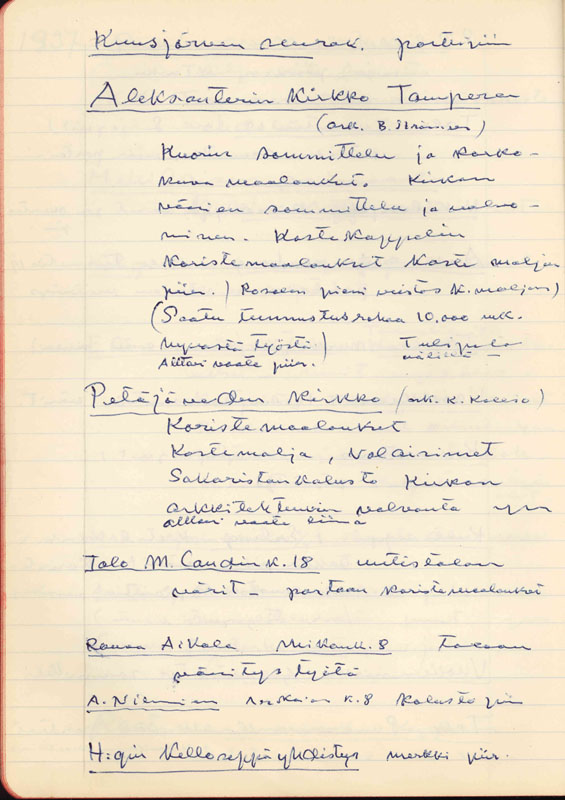 Kuusjärven seurak. porttipiir
Aleksanterin Kirkko Tampere
(ark. B. Strömmer)
Kuorin sommittelu ja korko-
kuva maalaukset. Kirkon
värien sommittelu ja valvo-
minen. Kaste Kappelin
Koristemaalaukset Kaste maljan
piir.) Rosoen pieni veistos K. maljan)
(Saatu tunnustusrahaa 10.000 mk.
hyvästä työstä) Tulipalo
Alttari vaate piir. välillä –
Petäjäveden Kirkko (ark. K.
Koristemaalaukset
Kastemalja, Valaisimet
Sakaristonkalusto Kirkon
arkkitehtuurin valvonta ym
alttari vaate liina
Talo M. Caudin k. 18 uutistalon
värit – portaan koristemaalaukset
Rouva Aikala k. 8
väritys työtä
A. Nieminen k. 8 Kalusto piir
H:gin Kelloseppäyhdistys merkki piir.